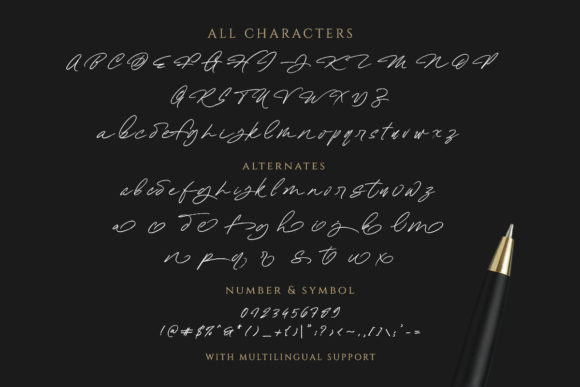 ALL CHARACTERS
A B C D E F G H I J K L M N O P
Q R S T U V W X Y Z
a b c d e f g h i j k l m n o p q r s t u v w x z
ALTERNATES
a b c d e f g h i j k l m n o r s t u v w z
a o d e f g h i j k l m
n p q r s t u x
NUMBER & SYMBOL
0123456789
!@#$%^&*()_+{}|":?><~.,[]\;'-=
WITH MULTILINGUAL SUPPORT